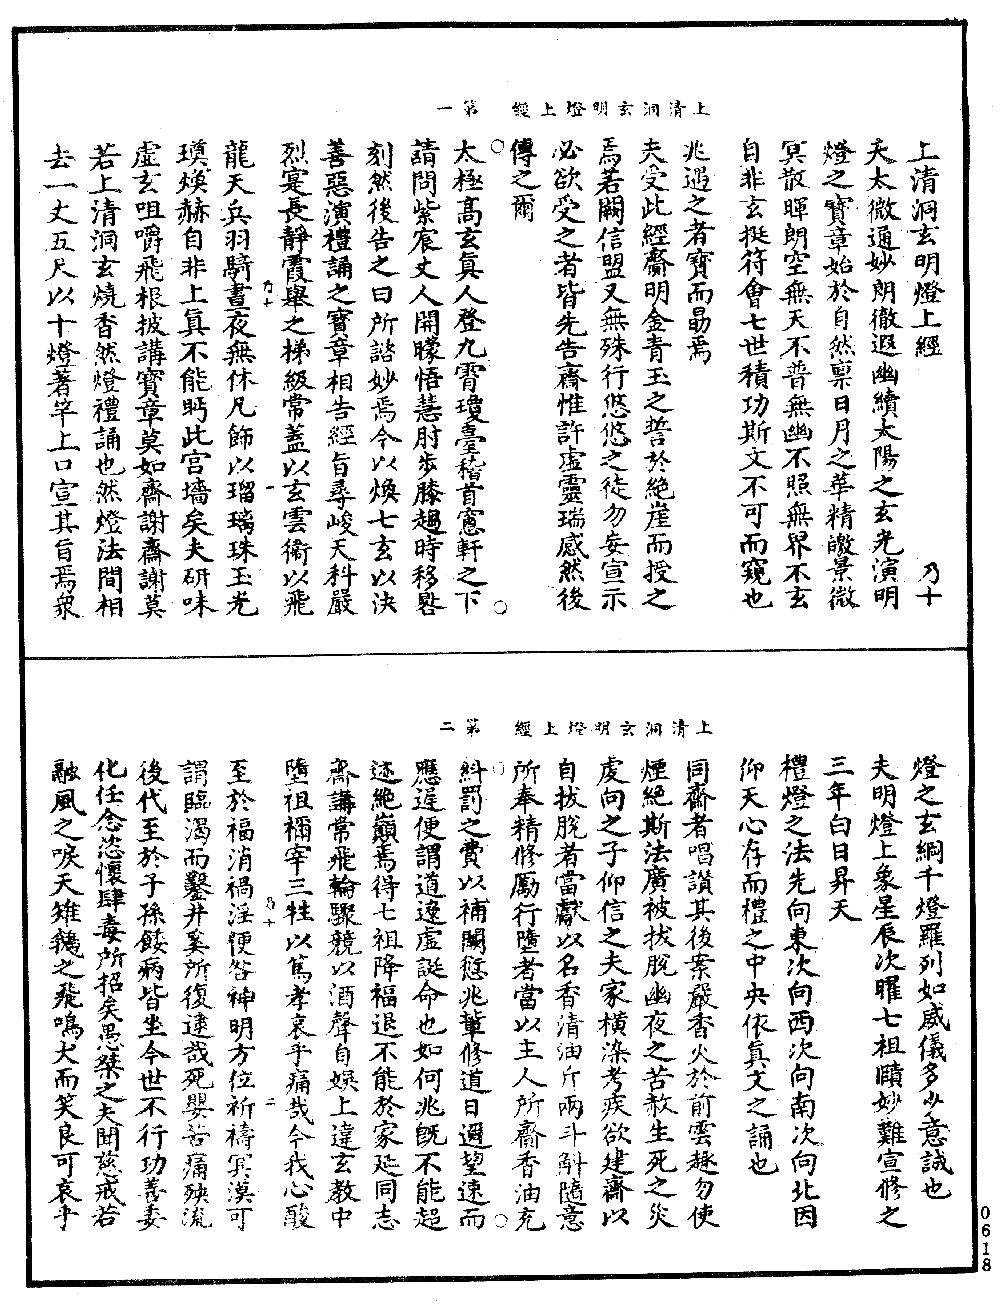 上清洞玄明燈上經　第一
上清洞玄明燈上經　乃十
夫太微通妙朗徹遐幽續太陽之玄光演明
燈之寶章始於自然稟日月之華精皦景微
冥散暉朗空無天不普無幽不照無界不玄
自非玄挺符會七世積功斯文不可而窺也
兆遇之者寶而勗焉
夫受此經齋明金青玉之誓於絶崖而授之
焉若闕信盟又無殊行悠悠之徒勿妄宣示
必欲受之者皆先告齋惟許虛靈瑞感然後
傳之爾
太極高玄真人登九霄瓊臺稽首寢軒之下
請問紫宸丈人開矇悟慧肘步膝趨時移晷
刻然後告之曰所諮妙焉今以煥七玄以決
善惡演禮誦之寶章相告經旨尋峻天科嚴
烈寔長靜霞舉之梯級常蓋以玄雲衛以飛
龍天兵羽騎晝夜無休凡飾以瑠璃珠玉光
瑛煥赫自非上真不能眄此宫墻矣夫研味
虛玄咀嚼飛根披講寶章莫如齋謝齋謝莫
若上清洞玄燒香然燈禮誦也然燈法間相
去一丈五尺以十燈著竿上口宣其旨焉衆
乃十　一
上清洞玄明燈上經　第二
燈之玄綱千燈羅列如威儀多少意誠也
夫明燈上象星辰次曜七祖賾妙難宣修之
三年白日昇天
禮燈之法先向東次向西次向南次向北因
仰天心存而禮之中央依真文之誦也
同齋者唱讚其後案嚴香火於前雲趣勿使
煙絶斯法廣被拔脱幽夜之苦赦生死之災
虔向之子仰信之夫家横染考疾欲建齋以
自拔脱者當獻以名香清油斤兩斗斛隨意
所奉精修勵行墮者當以主人所齋香油充
糾罰之費以補闕愆兆輩修道日邇望速而
應遅便謂道遠虛誕命也如何兆旣不能超
迹絶巔焉得七祖降福退不能於家延同志
齋講常飛輪驟競以酒聲自娱上違玄教中
墮祖禰宰三牲以篤孝哀乎痛哉今我心酸
至於福消禍淫便咎神明方位祈禱冥漠可
謂臨渴而鑿井奚所復逮哉死嬰苦痛殃流
後代至於子孫餧病皆坐今世不行功善委
化任念恣懷肆毒所招矣愚桀之夫聞兹戒若
融風之唳天雉鷄之飛鳴大而笑良可哀乎
乃十　二
0618